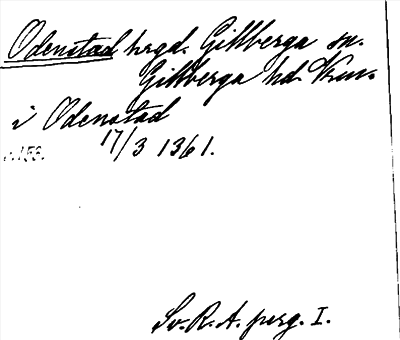 Odenstad hrgd. Gillberga sn.
Gillberga hd. Vrml.
i Odenstad
17/3 1361.
Sv. R. A. perg. I.